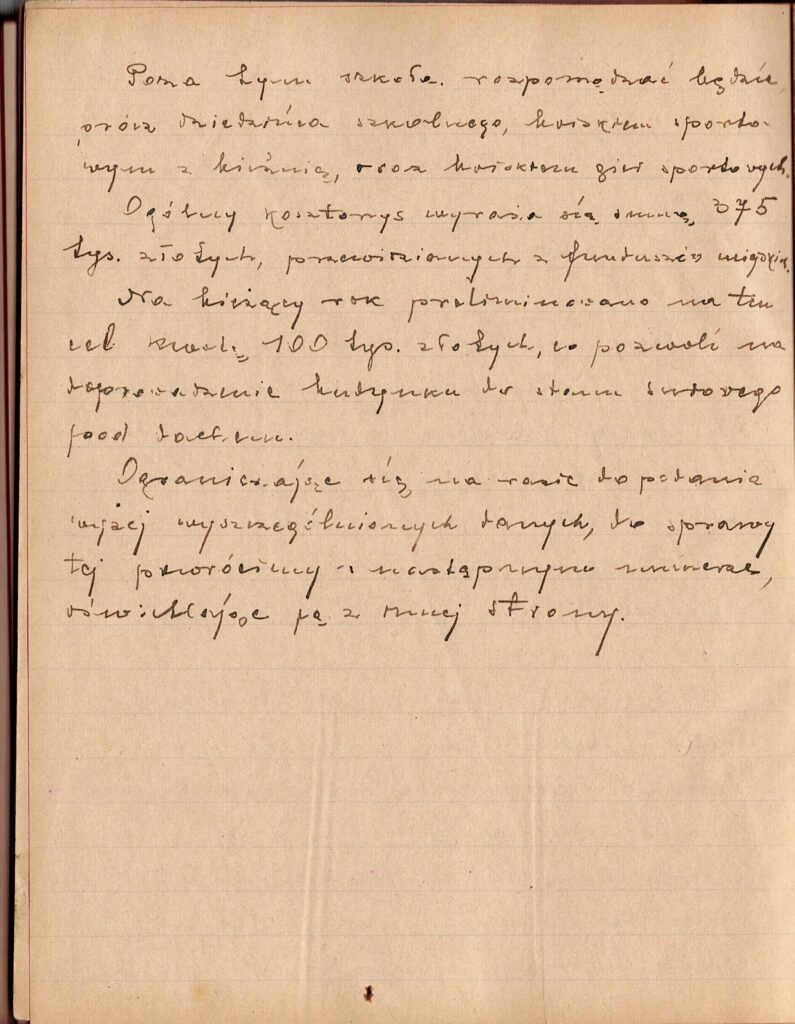 Poza tym szkoła rozporządzać będzie,
prócz dziedzińca szkolnego, boiskiem sporto-
wym z bieżnią, oraz boiskiem gier sportowych.
Ogólny kosztorys wyraża się sumą 375
tys. złotych, przewidzianych z funduszów miejskich.
Na bieżący rok preliminowano na ten
cel kwotę 100 tys. złotych, co pozwoli na
doprowadzenie budynku do stanu surowego
pod dachem.
Ograniczając się na razie do podania
wyżej wyszczególnionych danych, do sprawy
tej powrócimy w następnym numerze,
oświetlając ją z innej strony.